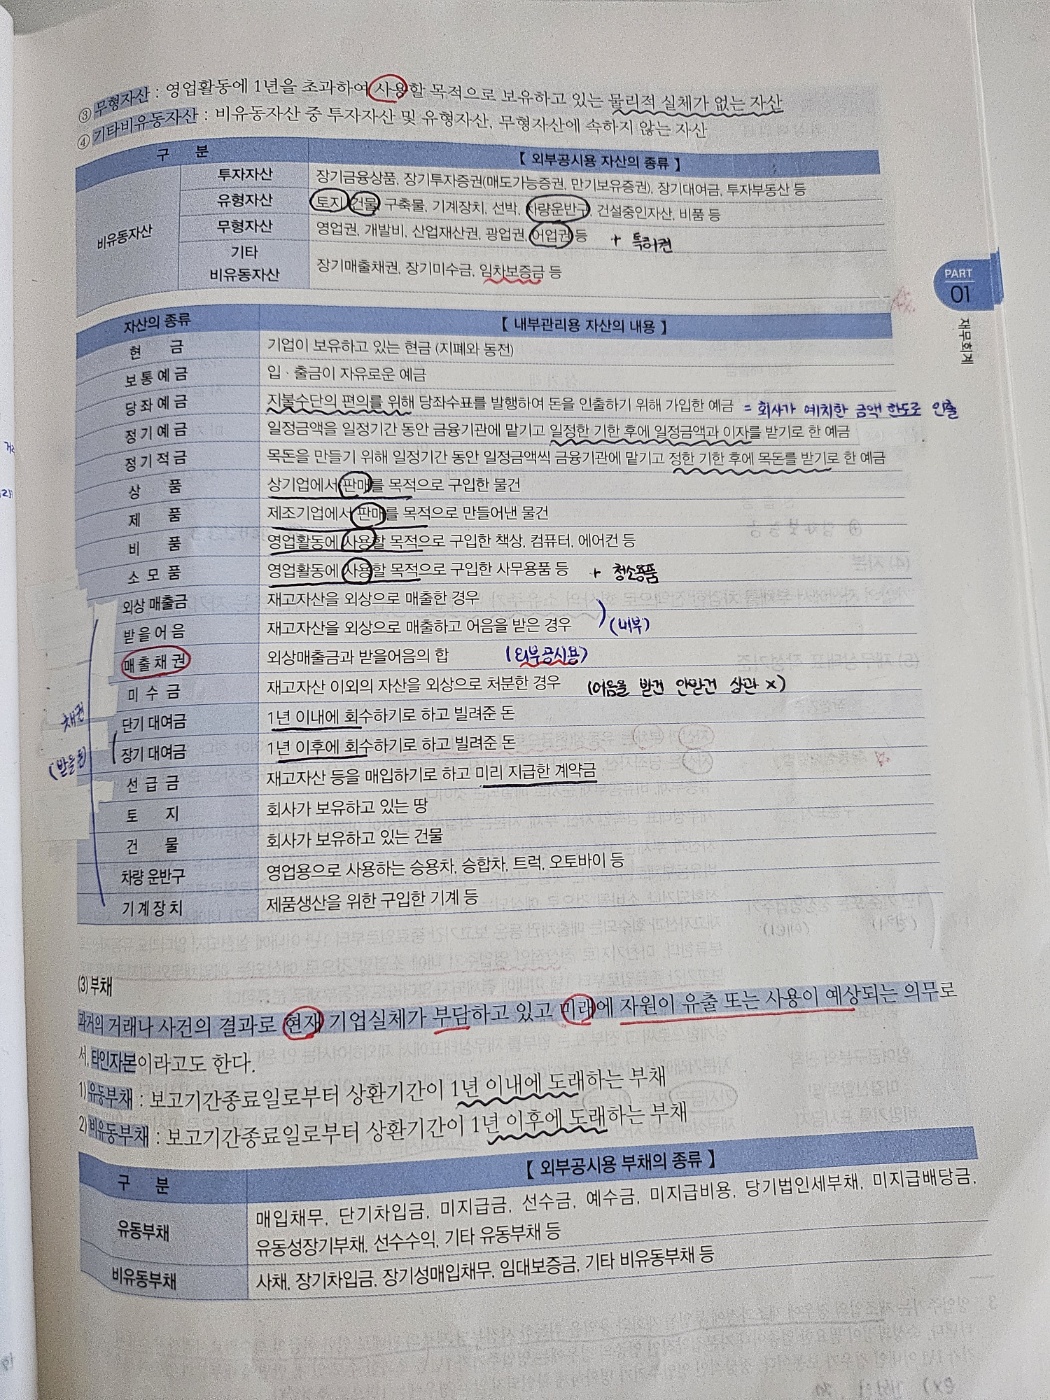 ③ 무형자산 : 영업활동에 1년을 초과하여 사용할 목적으로 보유하고 있는 물리적 실체가 없는 자산
④ 기타비유동자산 : 비유동자산 중 투자자산 및 유형자산, 무형자산에 속하지 않는 자산
구 분 【 외부공시용 자산의 종류 】
비유동자산
투자자산 장기금융상품, 장기투자증권(매도가능증권, 만기보유증권), 장기대여금, 투자부동산 등
유형자산 토지, 건물, 구축물, 기계장치, 선박, 차량운반구, 건설중인자산, 비품 등
무형자산 영업권, 개발비, 산업재산권, 광업권, 어업권 등 + 특허권
기타
비유동자산 장기매출채권, 장기미수금, 임차보증금 등
PART
01
재무회계
자산의 종류 【 내부관리용 자산의 내용 】
현 금 기업이 보유하고 있는 현금 (지폐와 동전)
보통예금 입·출금이 자유로운 예금
당좌예금 지불수단의 편의를 위해 당좌수표를 발행하여 돈을 인출하기 위해 가입한 예금 = 회사가 예치한 금액 한도로 인출
정기예금 일정금액을 일정기간 동안 금융기관에 맡기고 일정한 기한 후에 일정금액과 이자를 받기로 한 예금
정기적금 목돈을 만들기 위해 일정기간 동안 일정금액씩 금융기관에 맡기고 정한 기한 후에 목돈을 받기로 한 예금
상 품 상기업에서 판매를 목적으로 구입한 물건
제 품 제조기업에서 판매를 목적으로 만들어낸 물건
비 품 영업활동에 사용할 목적으로 구입한 책상, 컴퓨터, 에어컨 등
소모품 영업활동에 사용할 목적으로 구입한 사무용품 등 + 청소용품
외상 매출금 재고자산을 외상으로 매출한 경우
받을어음 재고자산을 외상으로 매출하고 어음을 받은 경우 (내부)
매출채권 외상매출금과 받을어음의 합 (외부공시용)
미수금 재고자산 이외의 자산을 외상으로 처분한 경우 (어음을 받건 안받건 상관 X)
단기 대여금 1년 이내에 회수하기로 하고 빌려준 돈
채권
장기 대여금 1년 이후에 회수하기로 하고 빌려준 돈
선급금 재고자산 등을 매입하기로 하고 미리 지급한 계약금
토 지 회사가 보유하고 있는 땅
건 물 회사가 보유하고 있는 건물
차량 운반구 영업용으로 사용하는 승용차, 승합차, 트럭, 오토바이 등
기계장치 제품생산을 위한 구입한 기계 등
(3) 부채
과거의 거래나 사건의 결과로 현재 기업실체가 부담하고 있고 미래에 자원이 유출 또는 사용이 예상되는 의무로
서, 타인자본이라고도 한다.
1) 유동부채 : 보고기간종료일로부터 상환기간이 1년 이내에 도래하는 부채
2) 비유동부채 : 보고기간종료일로부터 상환기간이 1년 이후에 도래하는 부채
구 분 【 외부공시용 부채의 종류 】
유동부채 매입채무, 단기차입금, 미지급금, 선수금, 예수금, 미지급비용, 당기법인세부채, 미지급배당금,
유동성장기부채, 선수수익, 기타 유동부채 등
비유동부채 사채, 장기차입금, 장기성매입채무, 임대보증금, 기타 비유동부채 등